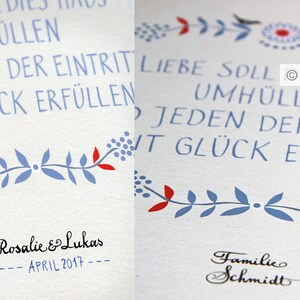 DIES HAUS
ÜLLEN
DER EINTRITT
CK ERFÜLLEN
Rosalie & Lukas
--- APRIL 2017 ---
LIEBE SOLL
UMHÜLL
D JEDEN DER
T GLÜCK E
Familie
Schmidt
©